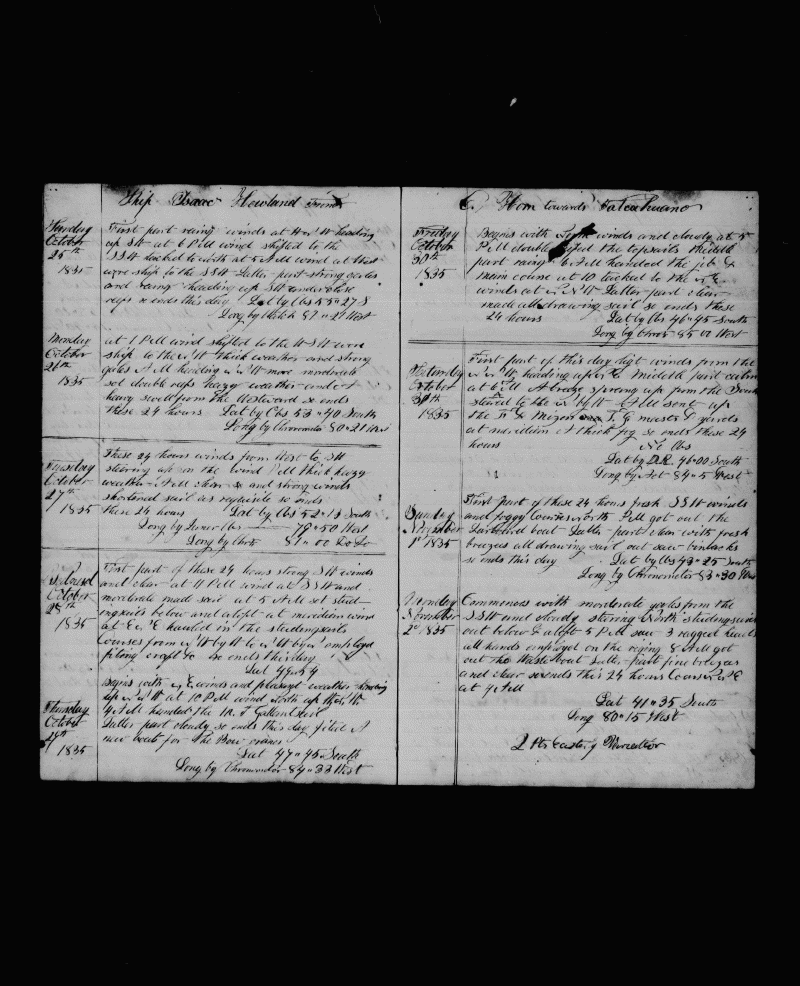 Ship Isaac Howland from
Sunday October 25th 1835
First part rainy winds at N W heading
up SW at 6 PM wind shifted to the
SSW tacked to north at 5 AM wind at West
wore ship to the SSW Latter part strong gales
and rainy heading up SW under close
reefs so ends this day Lat by Obs 55"27 S
Long by 81"21 West
Monday October 26th 1835
at 1 PM wind shifted to the WSW wore
ship to the N W thick weather and strong
gales A M heading N W more moderate
set double reefs hazy weather and A
heavy swell from the Westward so ends
these 24 hours Lat by Obs 53"40 South
Long by Chronometer 80"21 West
Tuesday October 27th 1835
These 24 hours winds from West to SW
stearing up on the wind PM thick hazy
weather AM clear and strong winds
shortened sail as requisite so ends
these 24 hours Lat by Obs 52"13 South
Long by Luner Obs 79"50 West
Long by Chro 81"00 Do Do
October 28th 1835
First part of these 24 hours strong SW winds
and clear at 11 PM wind at SSW and
moderate made sail at 5 AM set stud
ingsails below and aloft at meridian wind
at E N E hauled in the studingsails
Courses from N W by W to N W by N employd
fixing craft &c so ends this day
Lat 49"54
Thursday October 29th 1835
Begins with N E winds and pleasant weather heading
up N N W at 10 PM wind North up
4 AM handed the M T Gallant Sail
Latter part cloudy so ends this day fited A
new boat for the Bow
Lat 47"45 South
Long by Chronometer 84"33 West
C. Horn towards Talcahuano
Friday October 30th 1835
Begins with light winds and cloudy at 5
PM double reefed the topsails Middle
part rainy 6 AM handed the jib &
main course at 10 tacked to the N E
winds at N N W Latter part clear
made all drawing sail so ends these
24 hours Lat by Obs 46"45 South
Long by Chro 85"00 West
Saturday October 30th 1835
First part of this day light winds from the
N W heading up Middle part calm
at 6 AM A breeze sprung up from the South
steared to the N by W AM sent up
the F & Mizon T G mast & yards
at meridian A thick fog so ends these 24
hours
No Obs
Lat by D.R. 46"00 South
Long by Act 84"5 West
Sunday November 1st 1835
First part of these 24 hours fresh SSW winds
and foggy Courses North PM got out the
Larboard boat Latter part clear with fresh
breezes all drawing sail out saw finbacks
so ends this day Lat by Obs 43"25 South
Long by Chronometer 83"30 West
Monday November 2d 1835
Commences with moderate gales from the
SSW and cloudy stearing North studingsails
out below & aloft 5 PM saw 3 ragged
all hands employed on the riging 8 AM got
out the Waist boat Latter part fine breezes
and clear so ends this 24 hours Course N E
at 7 AM
Lat 41"35 South
Long 80"15 West
2 Pts Easterly